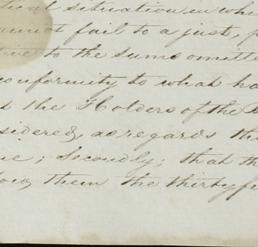 situation in whi
cannot fail to a just, p
to the same omitte
conformity to what ha
the Holders of the B
sidered, as regards the
ue; Secondly; that th
them the thirty fi